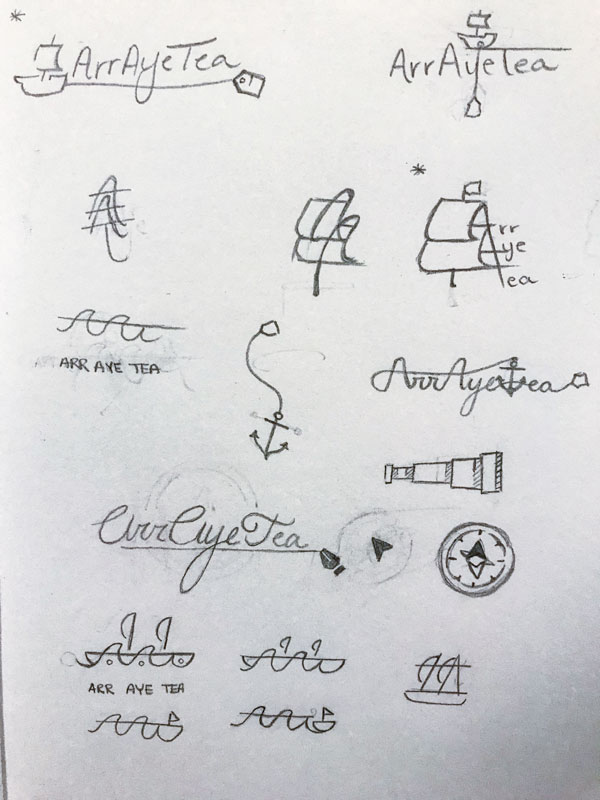 *
ArrAyeTea
ArrAyeTea
*
Arr
Aye
tea
ARR AYE TEA
ArrAyetea
ArrAyeTea
ARR AYE TEA